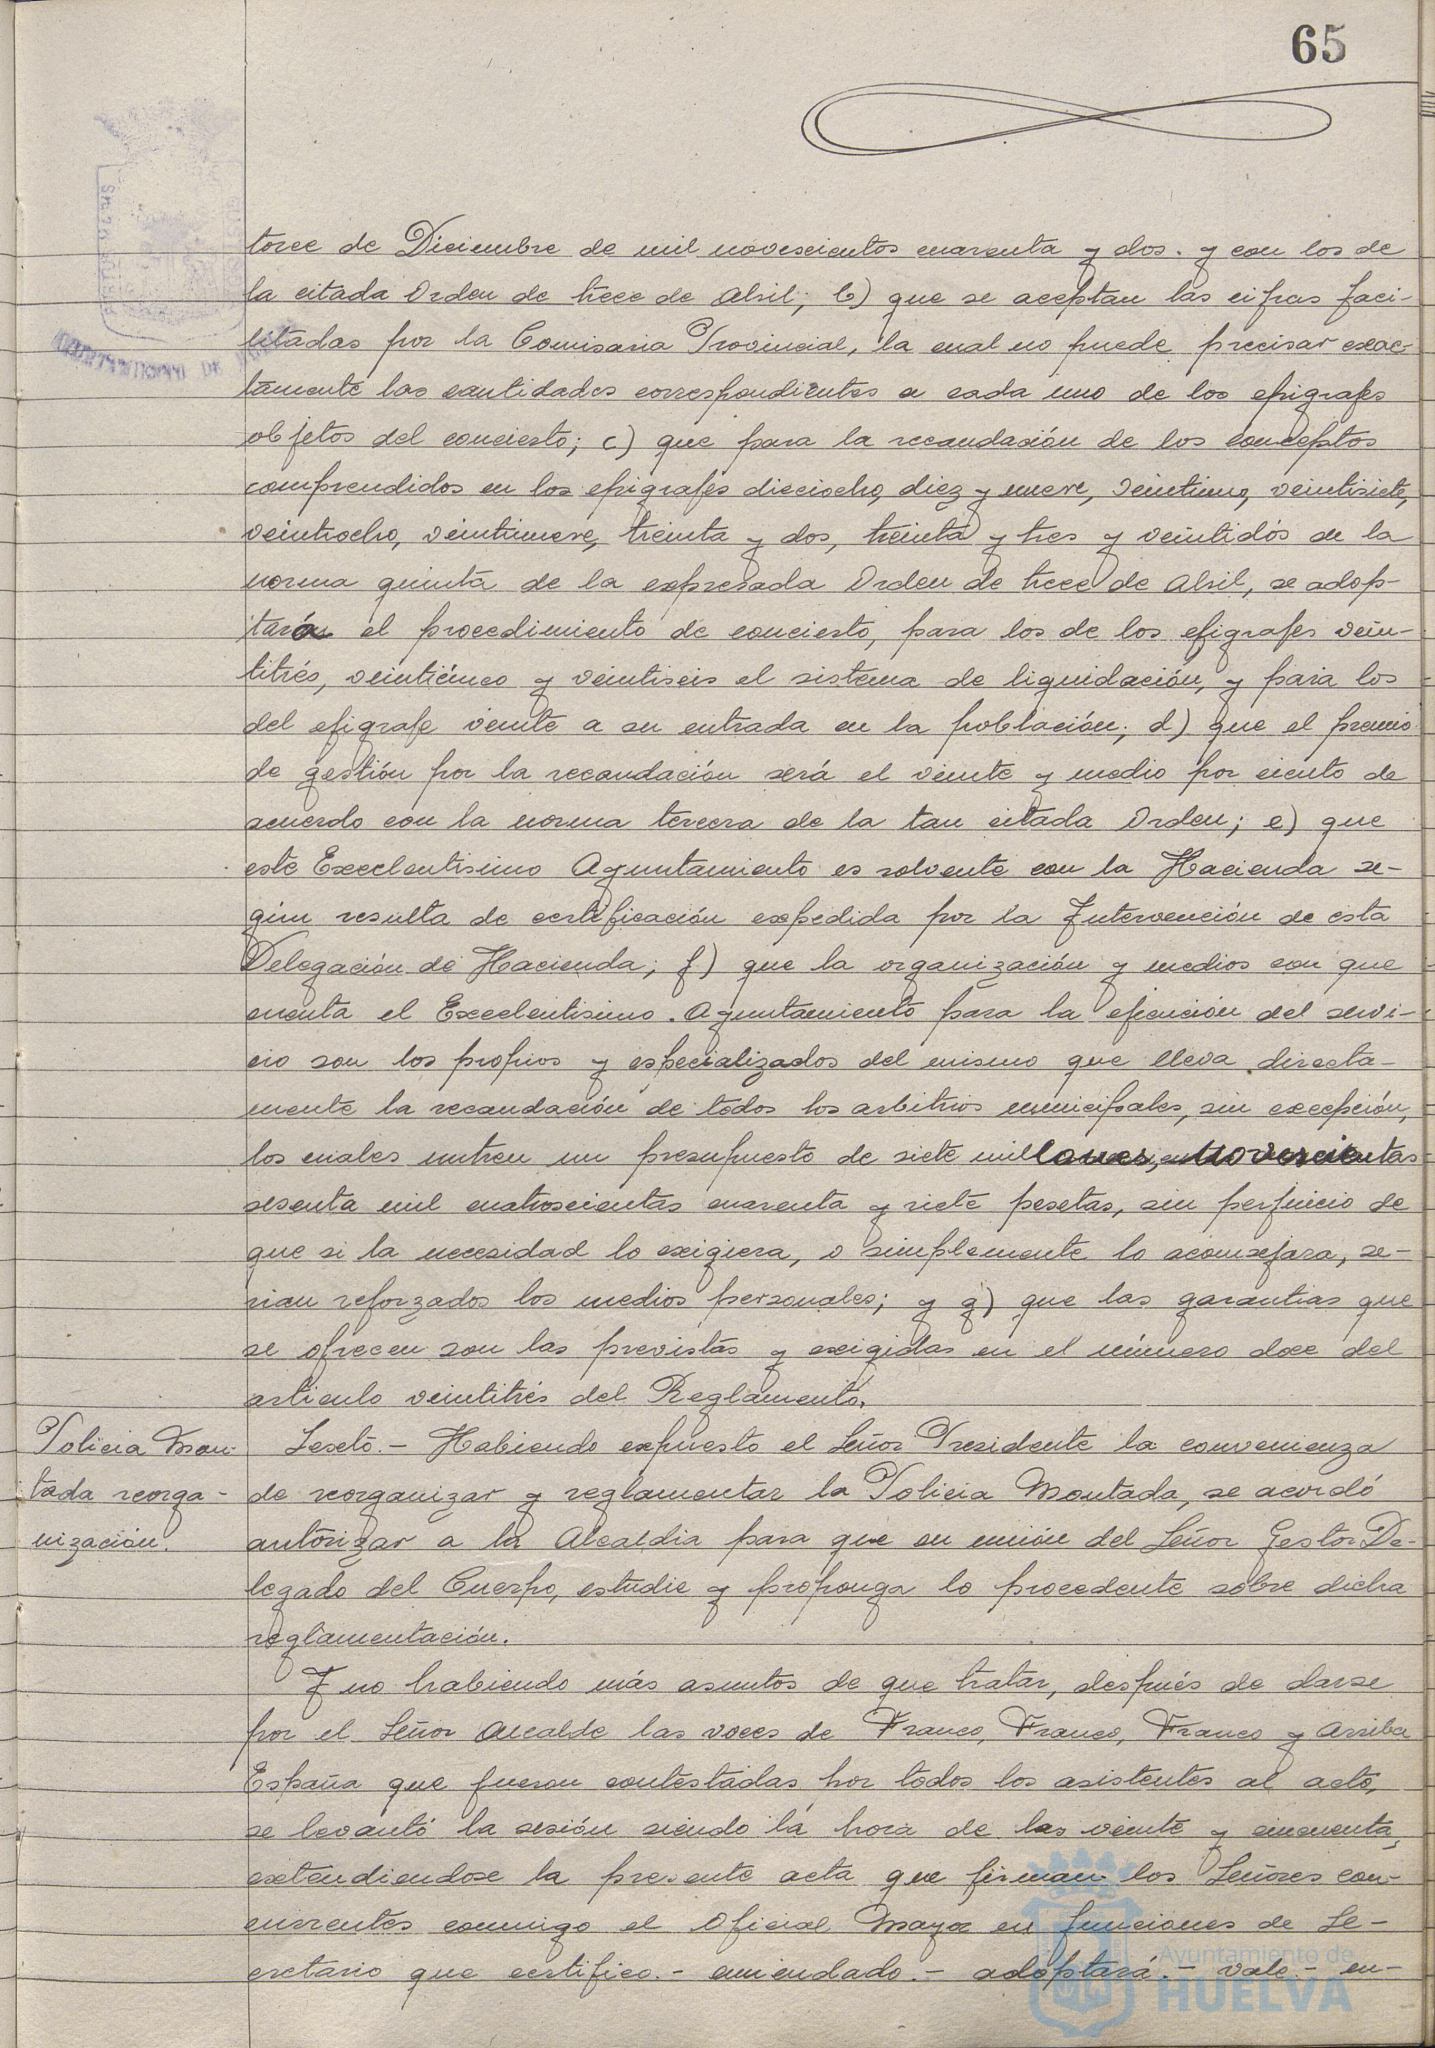 65
torce de Diciembre de mil novescientos cuarenta y dos. y con los de
la citada Orden de trece de Abril; b) que se aceptan las cifras faci-
litadas por la Comisaria Provincial, la cual no puede precisar exac-
tamente las cantidades correspondientes a cada uno de los epigrafes
objetos del concierto; c) que para la recaudación de los conceptos
comprendidos en los epigrafes dieciocho, diez y nueve, veintiuno, veintisiete,
veintiocho, veintinueve, treinta y dos, treinta y tres y veintidós de la
norma quinta de la expresada Orden de trece de Abril, se adop-
tará el procedimiento de concierto, para los de los epigrafes vein-
titrés, veinticinco y veintiseis el sistema de liquidación, y para los
del epigrafe veinte a su entrada en la población; d) que el premio
de gestión por la recaudación será el veinte y medio por ciento de
acuerdo con la norma tercera de la tan citada Orden; e) que
este Excelentisimo Ayuntamiento es solvente con la Hacienda se-
gún resulta de certificación expedida por la Intervención de esta
Delegación de Hacienda; f) que la organización y medios con que
cuenta el Excelentisimo. Ayuntamiento para la ejecución del servi-
cio son los propios y especializados del mismo que lleva directa-
mente la recaudación de todos los arbitrios municipales, sin excepción,
los cuales nutren un presupuesto de siete millones, novescientas
sesenta mil cuatroscientas cuarenta y siete pesetas, sin perjuicio de
que si la necesidad lo exigiera, o simplemente lo aconsejara, se-
rian reforzados los medios personales; y g) que las garantias que
se ofrecen son las previstas y exigidas en el número doce del
articulo veintitrés del Reglamento.
Policia Mon-
tada reorga-
nización.
Sexto.- Habiendo expuesto el Señor Presidente la convenienza
de reorganizar y reglamentar la Policia Montada, se acordó
autorizar a la Alcaldia para que en unión del Señor Gestor De-
legado del Cuerpo, estudie y proponga lo procedente sobre dicha
reglamentación.
Y no habiendo más asuntos de que tratar, después de darse
por el Señor Alcalde las voces de Franco, Franco, Franco y Arriba
España que fueron contestadas por todos los asistentes al acto,
se levantó la sesión siendo la hora de las veinte y cincuenta,
extendiendose la presente acta que firman los Señores con-
currentes conmigo el Oficial Mayor en funciones de Se-
cretario que certifico.- enmendado.- adoptará.- vale.- en-
AYUNTAMIENTO DE
Ayuntamiento de
HUELVA